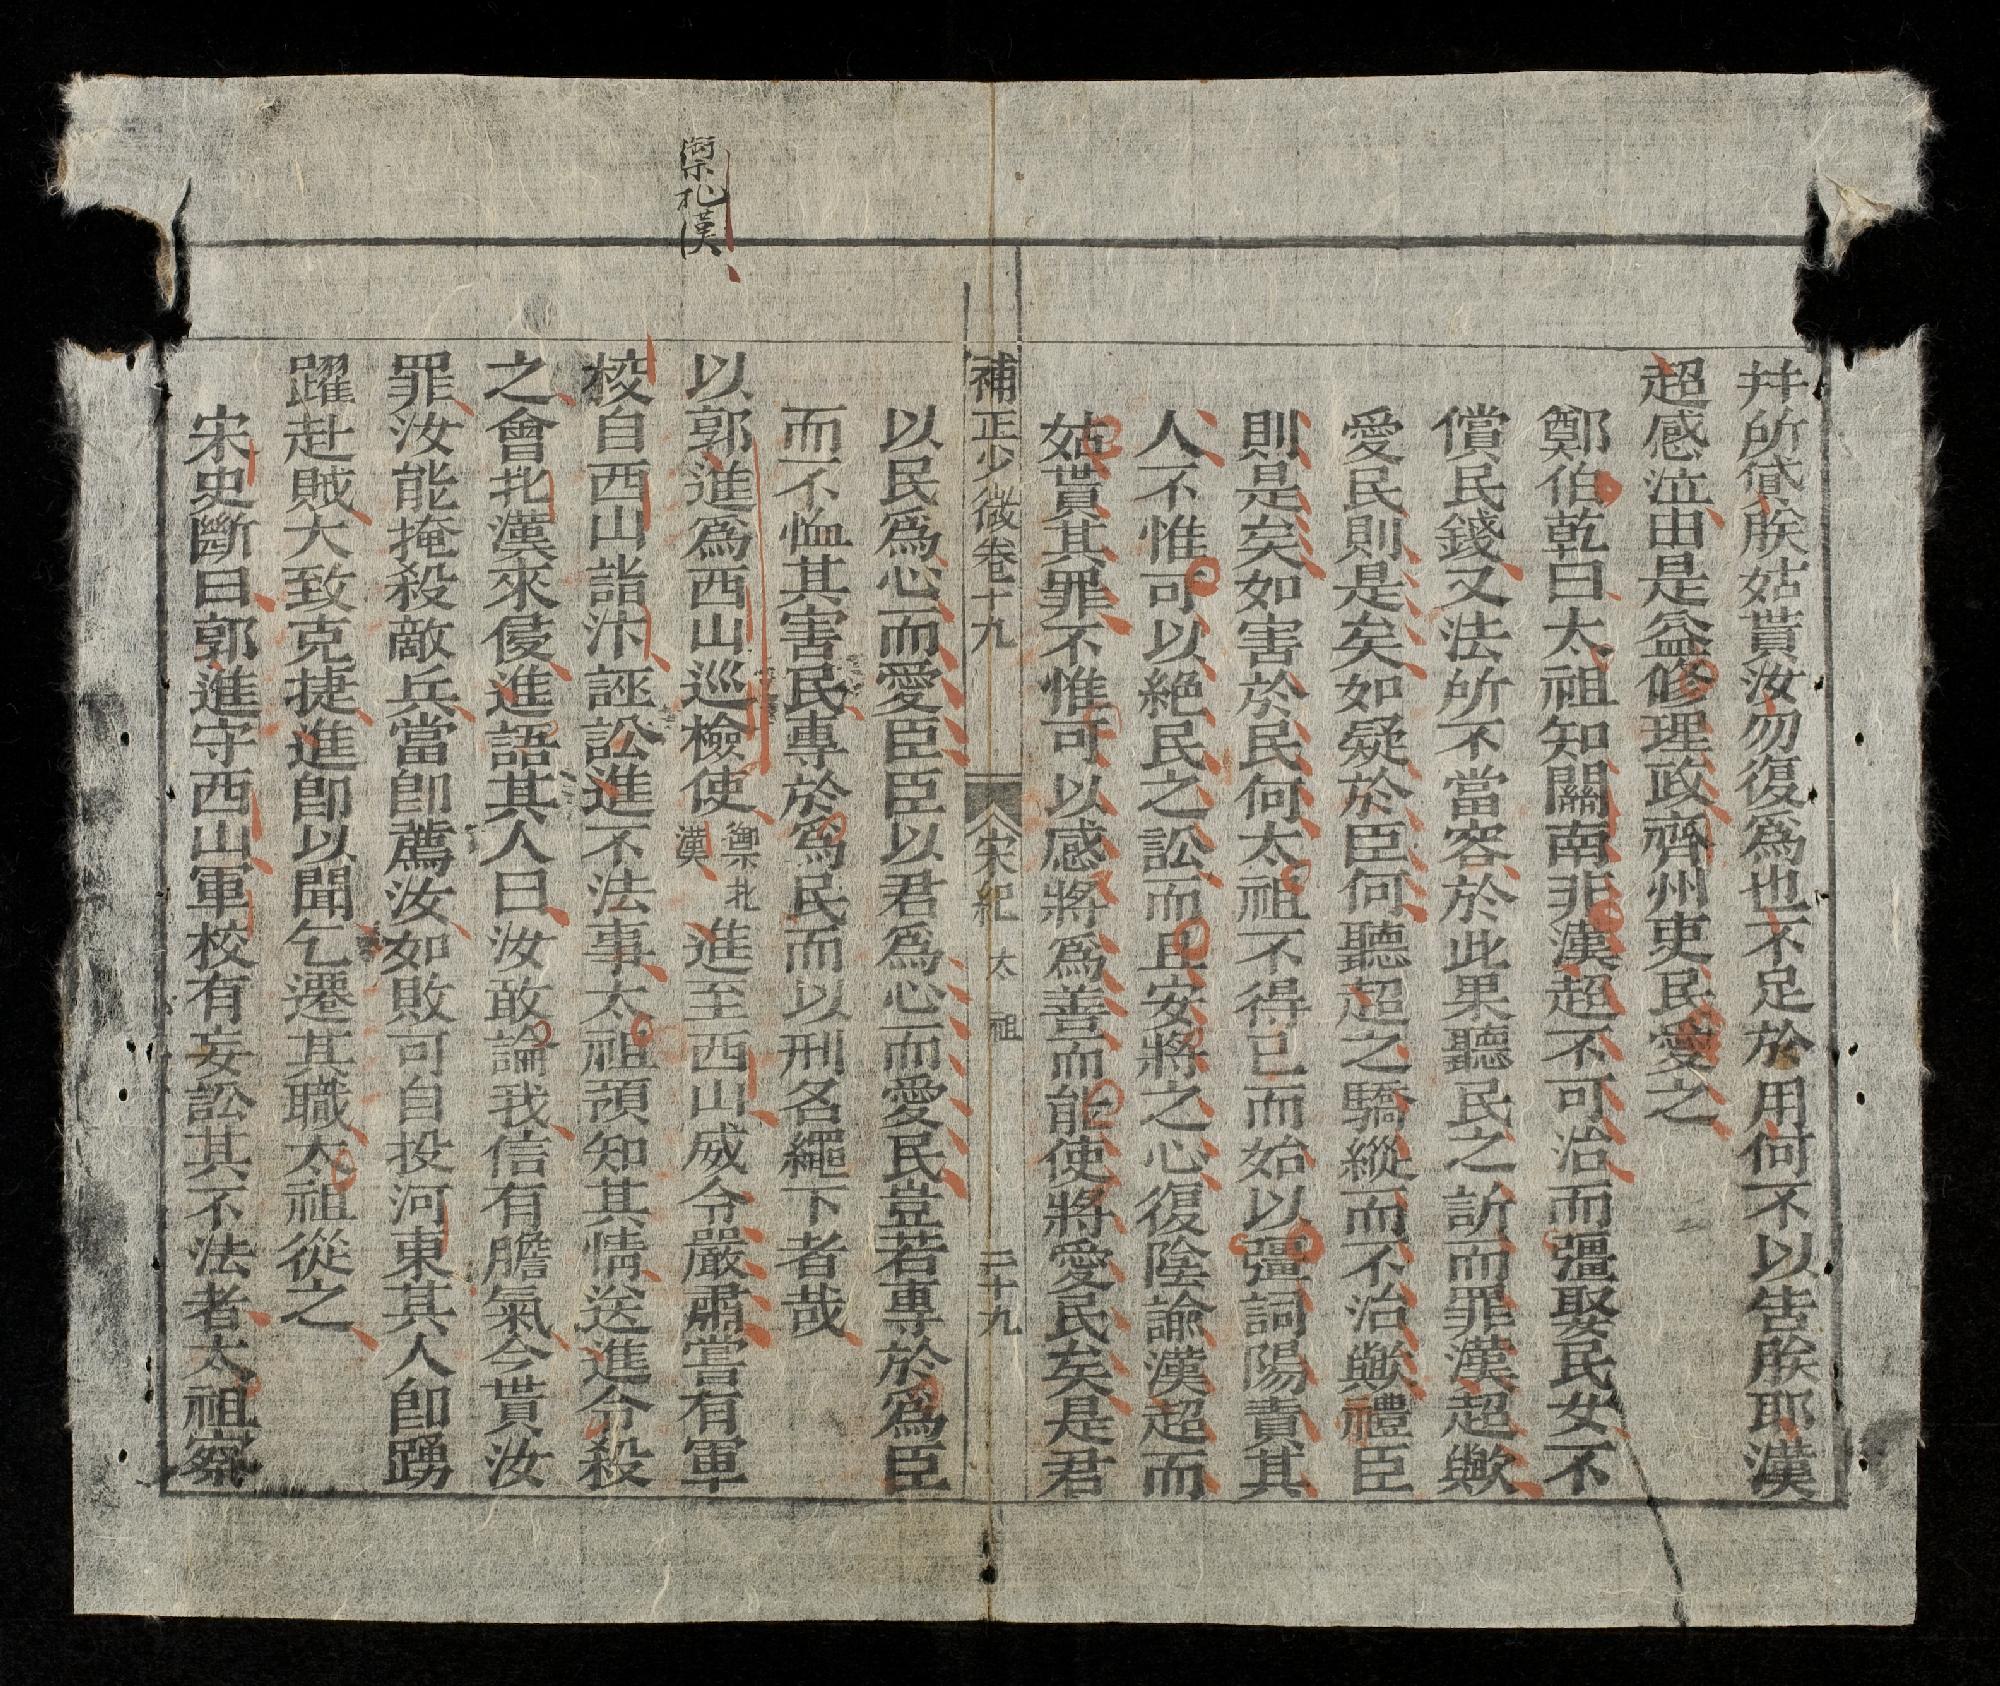 幷所貸朕姑貰汝勿復爲也不足於用何不以告朕耶漢
超感泣由是益修理政齊州吏民愛之
鄭伯乾曰太祖知關南非漢超不可治而彊娶民女不
償民錢又法所不當容於此果聽民之訴而罪漢超歟
愛民則是矣如疑於臣何聽超之驕縱而不治歟禮臣
則是矣如害於民何太祖不得已而始以彊詞陽責其
人不惟可以絶民之訟而且安將之心復陰諭漢超而
姑貰其罪不惟可以感將爲善而能使將愛民矣是君
補正少微卷十九 宋紀 太祖 二十九
以民爲心而愛臣臣以君爲心而愛民豈若專於爲臣
而不恤其害民專於爲民而以刑名繩下者哉
禦北漢
以郭進爲西山巡檢使禦北漢進至西山威令嚴肅嘗有軍
校自西山詣汴誣訟進不法事太祖頗知其情送進令殺
之會北漢來侵進語其人曰汝敢論我信有膽氣今貰汝
罪汝能掩殺敵兵當卽薦汝如敗可自投河東其人卽踴
躍赴賊大致克捷進卽以聞乞遷其職太祖從之
宋史斷曰郭進守西山軍校有妄訟其不法者太祖察